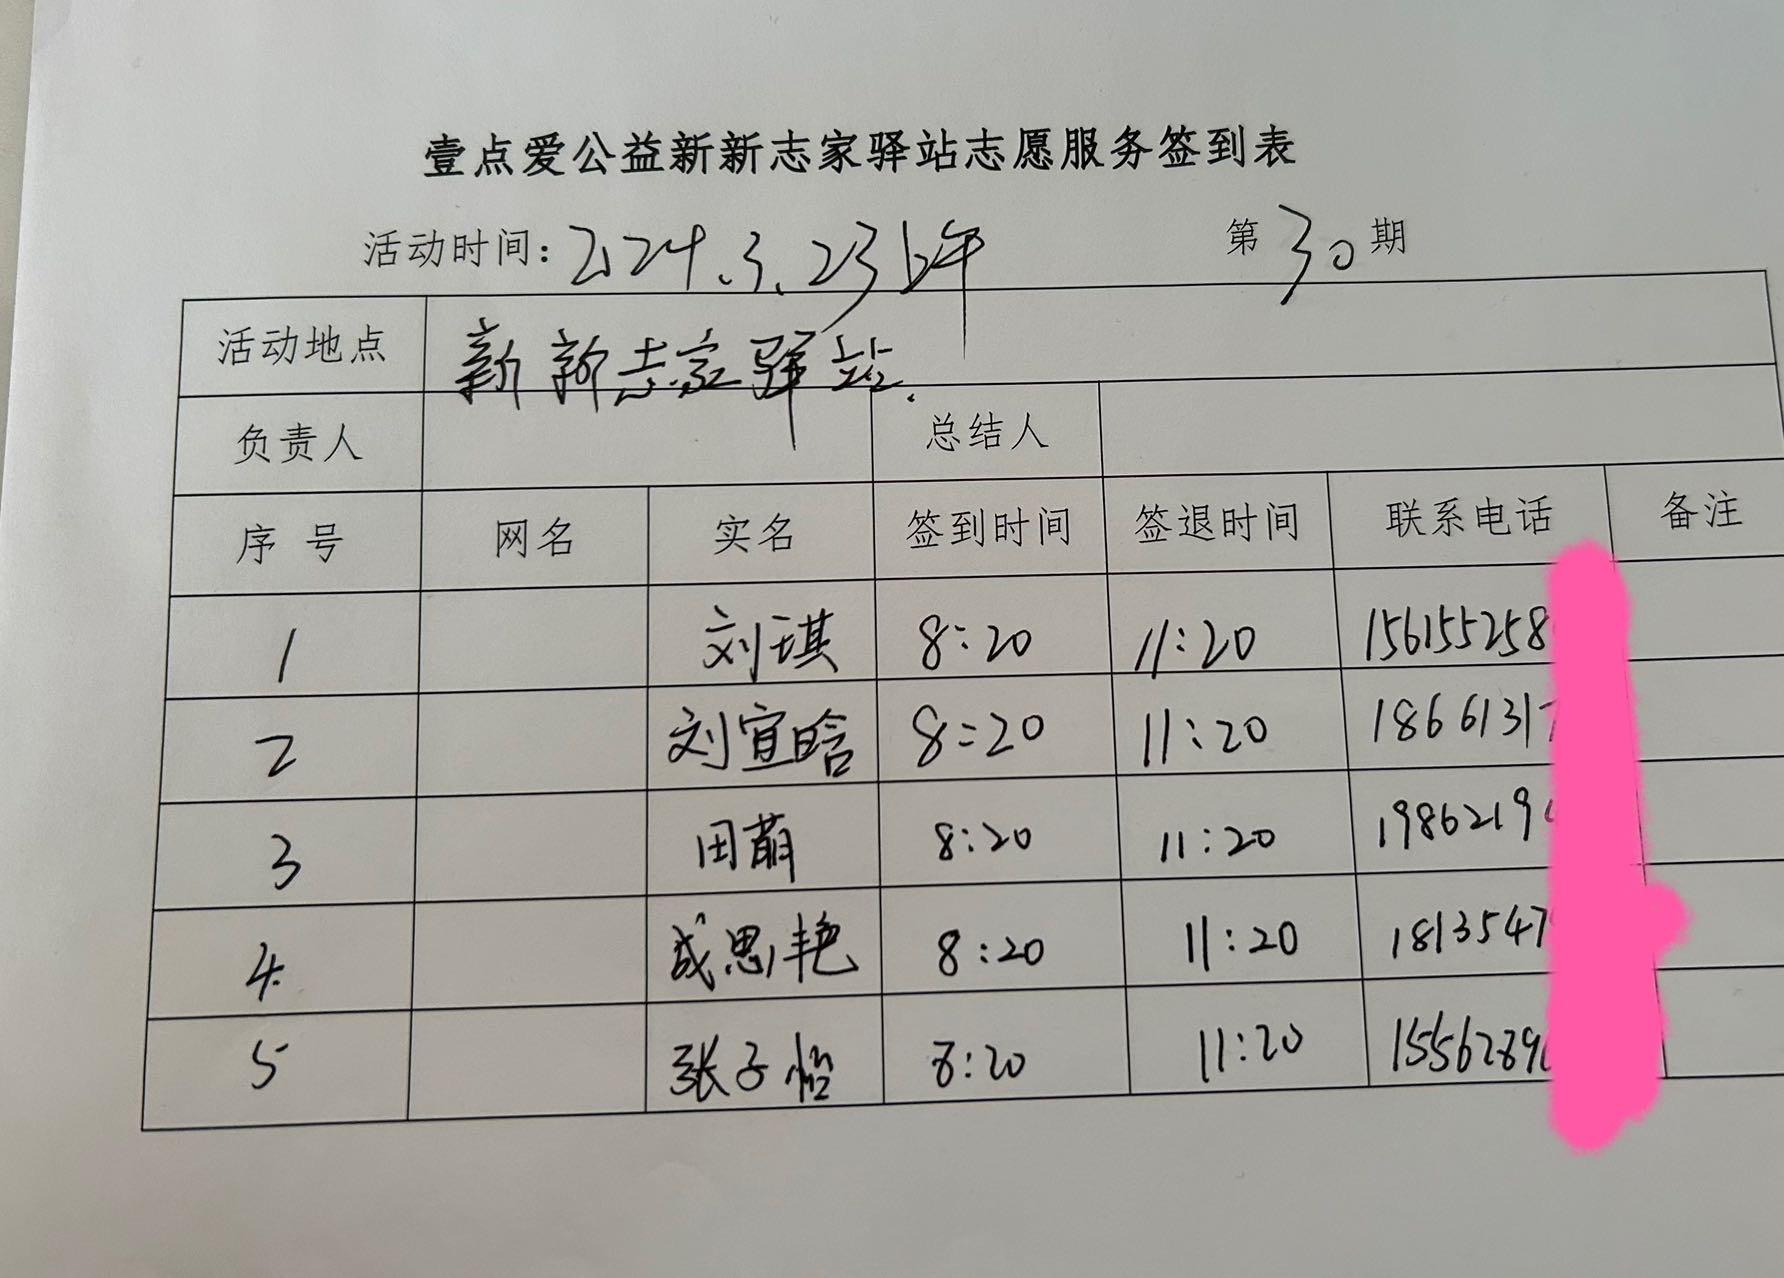 壹点爱公益新新志家驿站志愿服务签到表
活动时间: 2024.3.23上午 第30期
活动地点 新新志家驿站.
负责人 总结人
序 号 网名 实名 签到时间 签退时间 联系电话 备注
1 刘琪 8:20 11:20 156155258
2 刘宣晗 8:20 11:20 1866131
3 田萌 8:20 11:20 1986219
4. 成思艳 8:20 11:20 1813547
5 张子怡 8:20 11:20 1556289